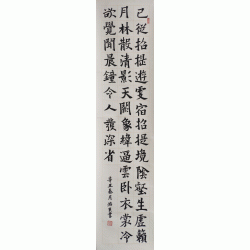 已從招提遊更宿招提境陰壑生虛籟
月林散清影天闕象緯逼雲臥衣裳冷
欲覺聞晨鐘令人發深省
辛丑春月書